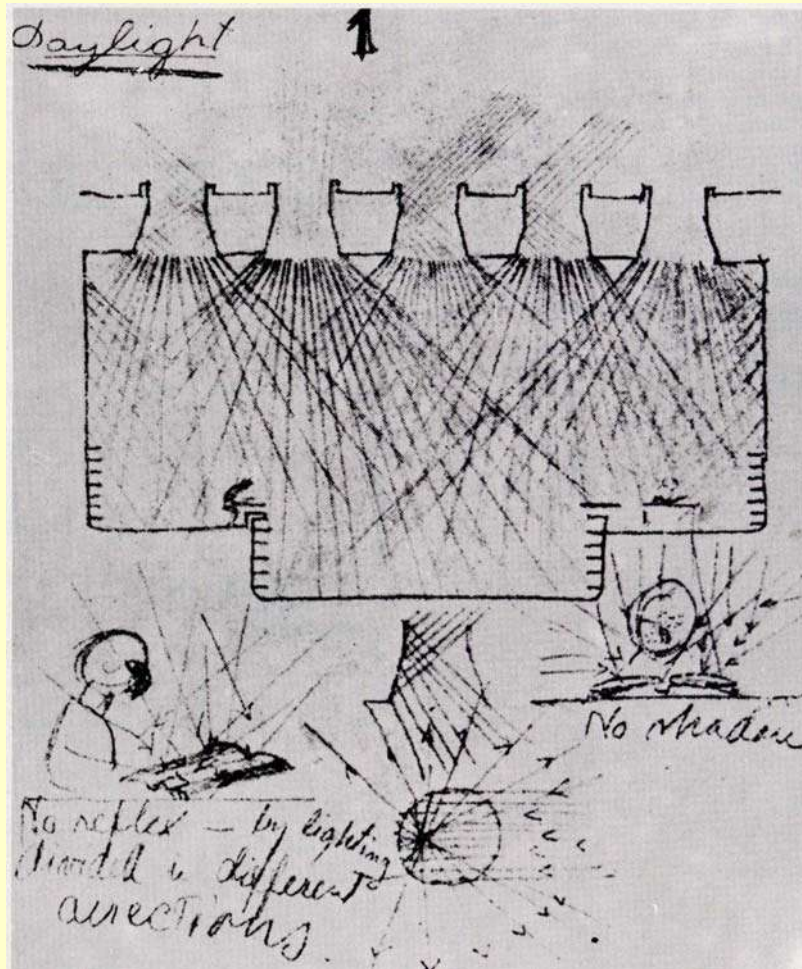 Daylight
1
No shadow
No reflex — by lighting
divided in different
directions